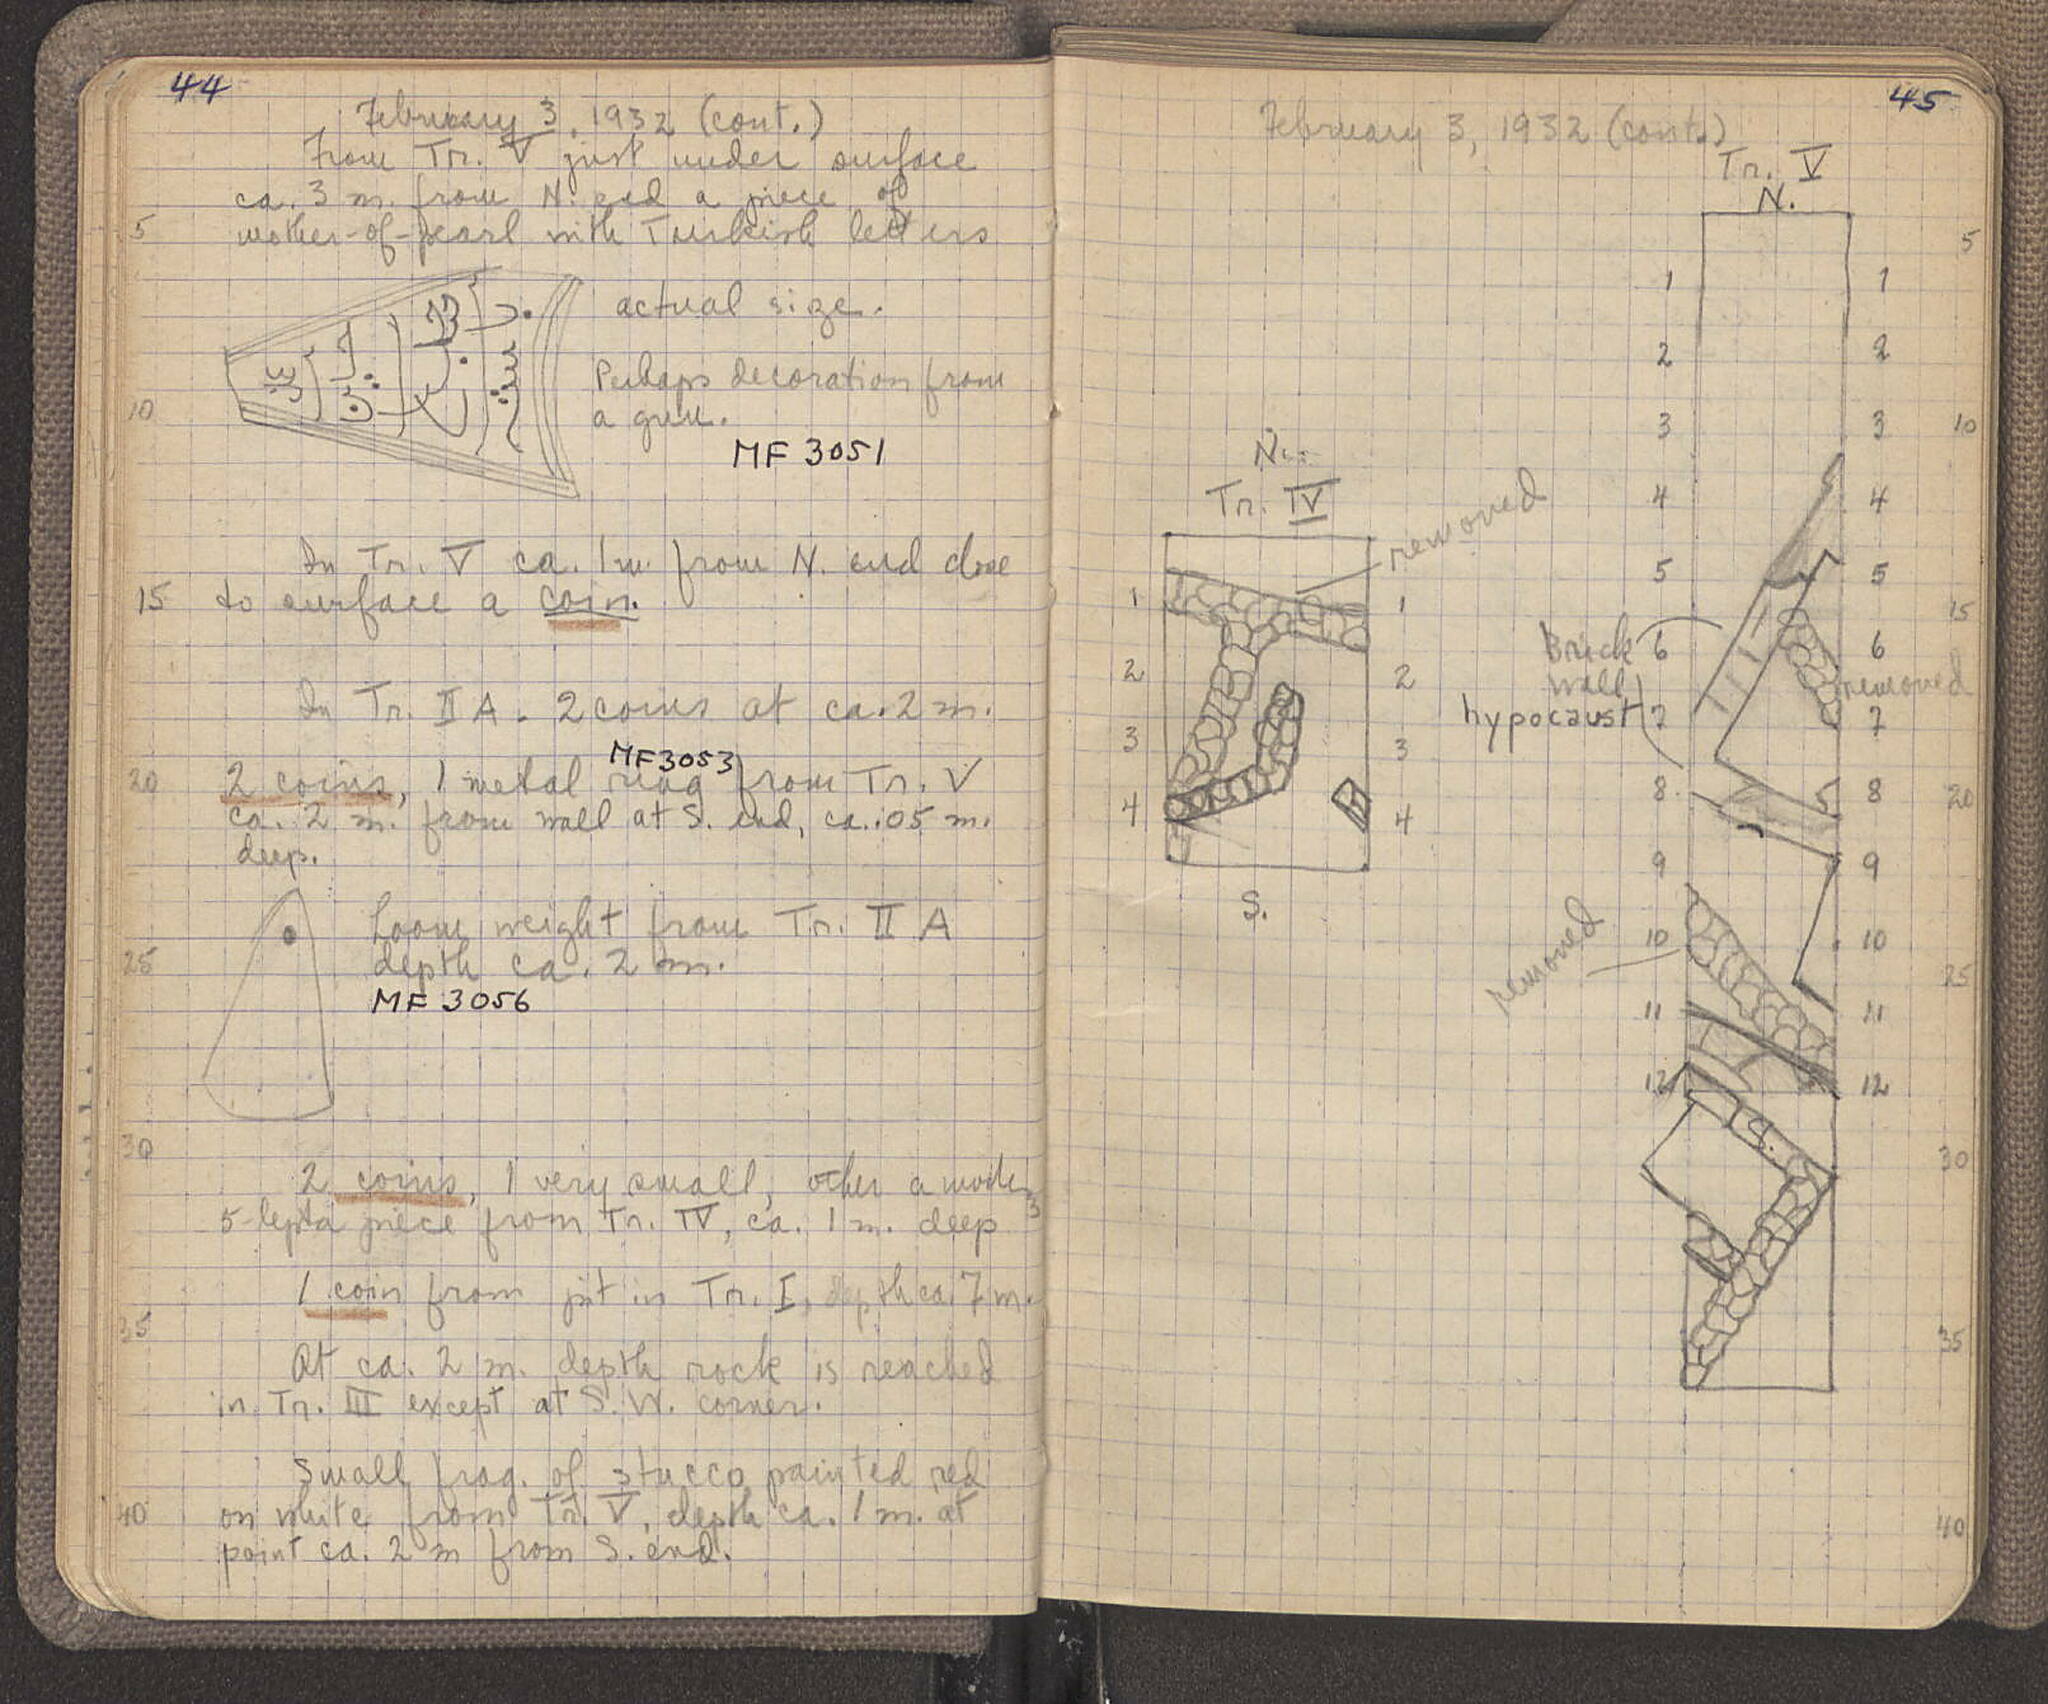 44
February 3, 1932 (cont.)
From Tr. V just under surface
ca. 3 m. from N. end a piece of
5
mother-of-pearl with Turkish letters
actual size.
Perhaps decoration from
10
a gun.
MF 3051
In Tr. V ca. 1 m. from N. end close
15
to surface a coin.
In Tr. II A. 2 coins at ca. 2 m.
MF 3053
20
2 coins, 1 metal ring from Tr. V
ca. 2 m. from wall at S. end, ca. .05 m.
deep.
Loom weight from Tr. II A
25
depth ca. 2 m.
MF 3056
30
2 coins, 1 very small, other a modern
5-lepta piece from Tr. IV, ca. 1 m. deep
1 coin from pit in Tr. I, depth ca. 7 m.
35
At ca. 2 m. depth rock is reached
in Tr. III except at S.W. corner.
Small frag. of stucco painted red
40
on white from Tr. V, depth ca. 1 m. at
point ca. 2 m from S. end.
45
February 3, 1932 (cont.)
Tr. V
N.
5
1 1
2 2
3 3
10
N.
Tr. IV
removed
4 4
5 5
1 1
15
Brick
wall
6 6
removed
2 2
hypocaust
7 7
3 3
8 8
20
4 4
9 9
S.
removed
10 10
25
11 11
12 12
30
35
40